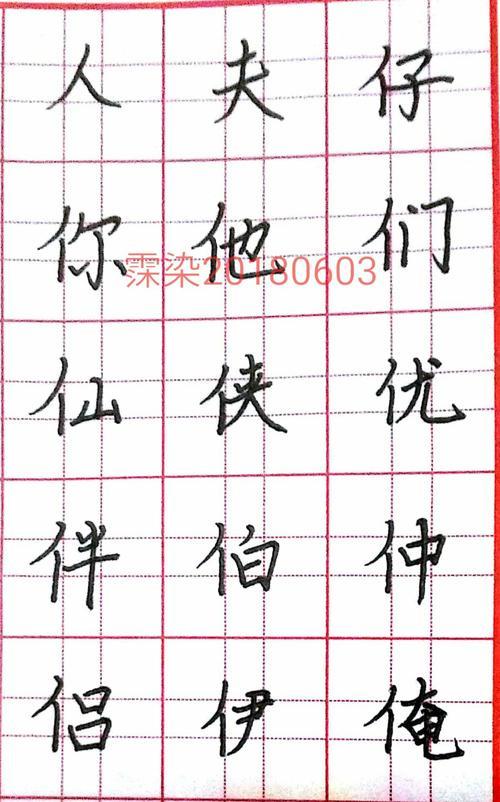 人 夫 仔
你 他 们
霂染20180603
仙 侠 优
伴 伯 仲
侣 伊 俺